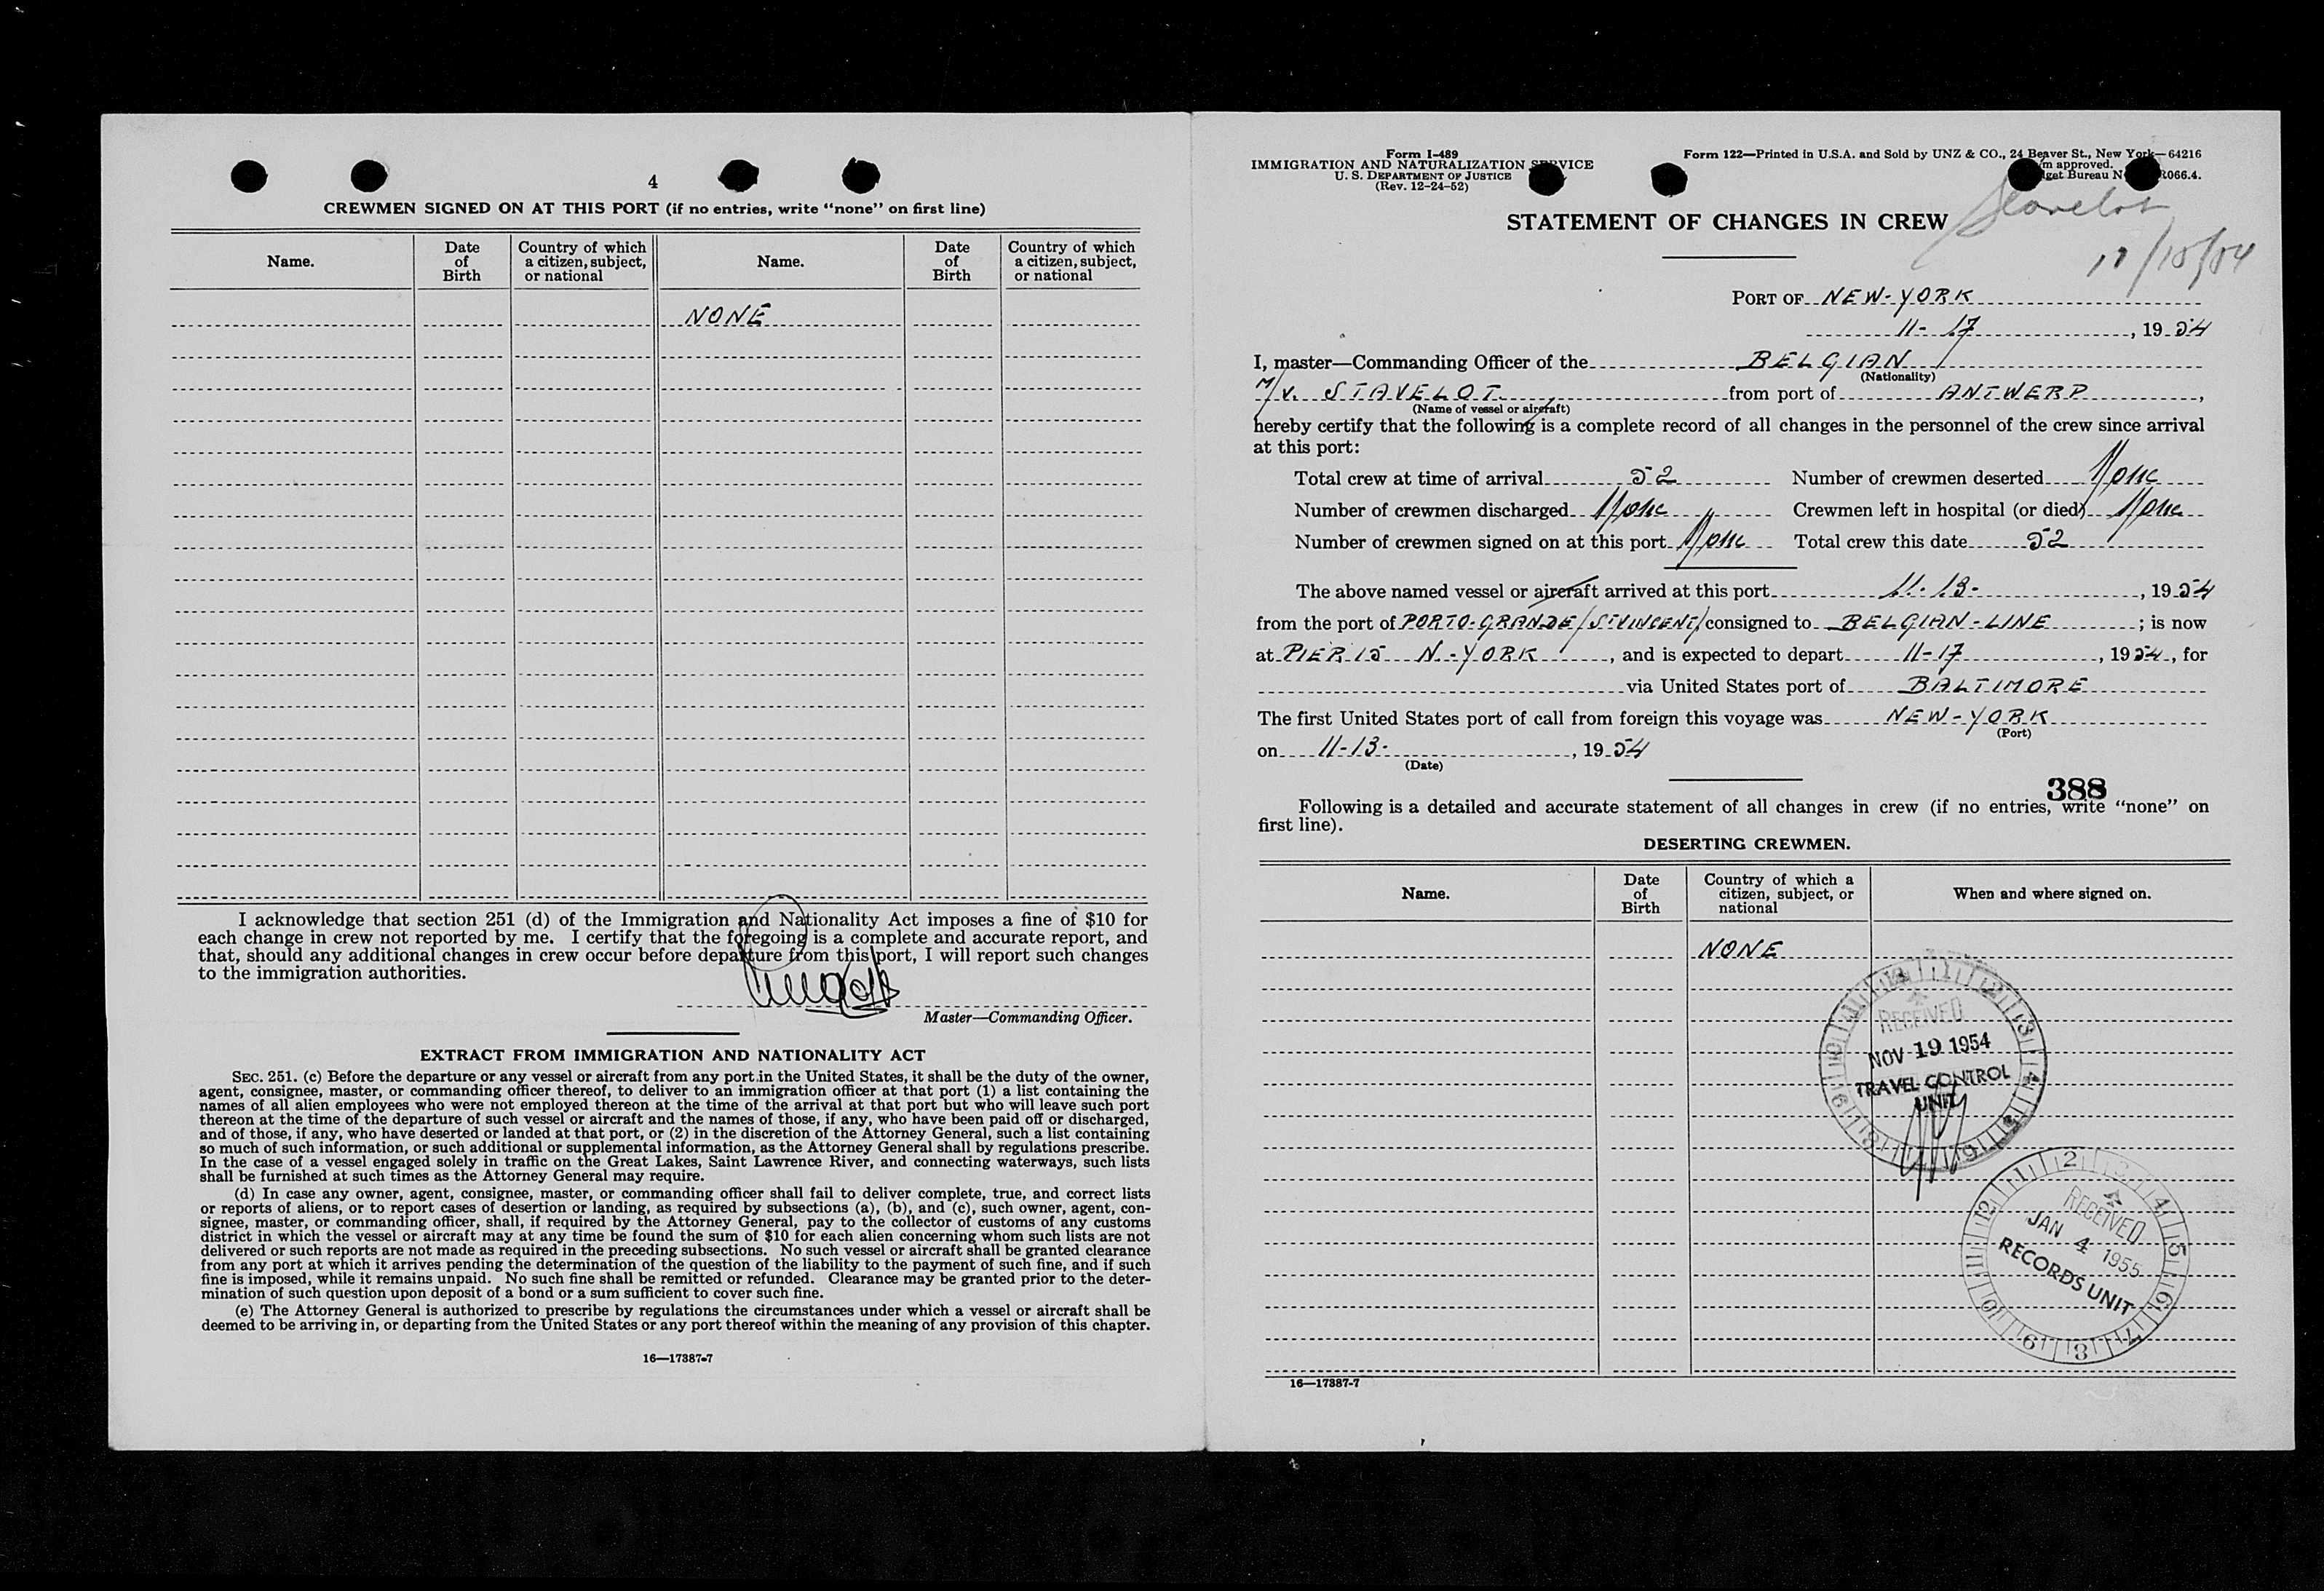 4
CREWMEN SIGNED ON AT THIS PORT (if no entries, write “none” on first line)
Name. Date of Birth Country of which a citizen, subject, or national Name. Date of Birth Country of which a citizen, subject, or national
NONE
I acknowledge that section 251 (d) of the Immigration and Nationality Act imposes a fine of $10 for
each change in crew not reported by me. I certify that the foregoing is a complete and accurate report, and
that, should any additional changes in crew occur before departure from this port, I will report such changes
to the immigration authorities.
Master—Commanding Officer.
EXTRACT FROM IMMIGRATION AND NATIONALITY ACT
SEC. 251. (c) Before the departure or any vessel or aircraft from any port in the United States, it shall be the duty of the owner,
agent, consignee, master, or commanding officer thereof, to deliver to an immigration officer at that port (1) a list containing the
names of all alien employees who were not employed thereon at the time of the arrival at that port but who will leave such port
thereon at the time of the departure of such vessel or aircraft and the names of those, if any, who have been paid off or discharged,
and of those, if any, who have deserted or landed at that port, or (2) in the discretion of the Attorney General, such a list containing
so much of such information, or such additional or supplemental information, as the Attorney General shall by regulations prescribe.
In the case of a vessel engaged solely in traffic on the Great Lakes, Saint Lawrence River, and connecting waterways, such lists
shall be furnished at such times as the Attorney General may require.
(d) In case any owner, agent, consignee, master, or commanding officer shall fail to deliver complete, true, and correct lists
or reports of aliens, or to report cases of desertion or landing, as required by subsections (a), (b), and (c), such owner, agent, con-
signee, master, or commanding officer, shall, if required by the Attorney General, pay to the collector of customs of any customs
district in which the vessel or aircraft may at any time be found the sum of $10 for each alien concerning whom such lists are not
delivered or such reports are not made as required in the preceding subsections. No such vessel or aircraft shall be granted clearance
from any port at which it arrives pending the determination of the question of the liability to the payment of such fine, and if such
fine is imposed, while it remains unpaid. No such fine shall be remitted or refunded. Clearance may be granted prior to the deter-
mination of such question upon deposit of a bond or a sum sufficient to cover such fine.
(e) The Attorney General is authorized to prescribe by regulations the circumstances under which a vessel or aircraft shall be
deemed to be arriving in, or departing from the United States or any port thereof within the meaning of any provision of this chapter.
16—17387-7
Form I-489
IMMIGRATION AND NATURALIZATION SERVICE
U. S. DEPARTMENT OF JUSTICE
(Rev. 12-24-52)
Form 122—Printed in U.S.A. and Sold by UNZ & CO., 24 Beaver St., New York—64216
approved.
Bureau R066.4.
Stavelot
STATEMENT OF CHANGES IN CREW
PORT OF NEW-YORK
11-17, 1954
I, master—Commanding Officer of the BELGIAN
(Nationality)
M/V. STAVELOT from port of ANTWERP,
(Name of vessel or aircraft)
hereby certify that the following is a complete record of all changes in the personnel of the crew since arrival
at this port:
Total crew at time of arrival 52 Number of crewmen deserted None
Number of crewmen discharged None Crewmen left in hospital (or died) None
Number of crewmen signed on at this port None Total crew this date 52
The above named vessel or aircraft arrived at this port 11-13-, 1954
from the port of PORTO-GRANDE/STVINCENT/ consigned to BELGIAN-LINE; is now
at PIER 15 N-YORK, and is expected to depart 11-17, 1954, for
via United States port of BALTIMORE
The first United States port of call from foreign this voyage was NEW-YORK
(Port)
on 11-13-, 1954
(Date)
388
Following is a detailed and accurate statement of all changes in crew (if no entries, write “none” on
first line).
DESERTING CREWMEN.
Name. Date of Birth Country of which a citizen, subject, or national When and where signed on.
NONE
RECEIVED
NOV 19 1954
TRAVEL CONTROL
UNIT
RECEIVED
JAN 4 1955
RECORDS UNIT
16—17387-7